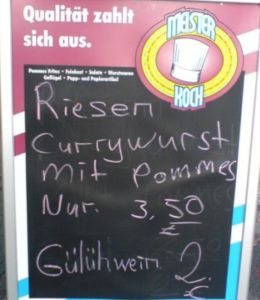 Qualität zahlt
sich aus.
MEISTER
KOCH
Pommes Frites • Feinkost • Salate • Wurstwaren
Geflügel • Papp- und Papierartikel
Riesen
Currywurst
mit Pommes
Nur. 3,50
€
Gülühwein 2.
€